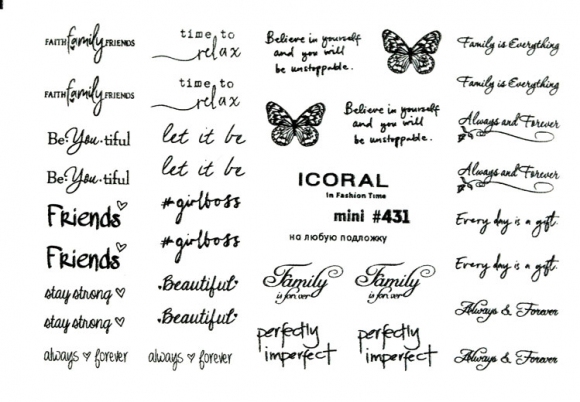 FAITH family FRIENDS
FAITH family FRIENDS
Be·You·tiful
Be·You·tiful
Friends
Friends
stay strong
stay strong
always forever
time to
relax
time to
relax
let it be
let it be
#girlboss
#girlboss
Beautiful
Beautiful
always forever
Believe in yourself
and you will
be unstoppable.
Believe in yourself
and you will
be unstoppable.
ICORAL
In Fashion Time
mini #431
на любую подложку
Family
is forever
Family
is forever
perfectly
imperfect
perfectly
imperfect
Family is Everything
Family is Everything
Always and Forever
Always and Forever
Every day is a gift.
Every day is a gift.
Always & Forever
Always & Forever